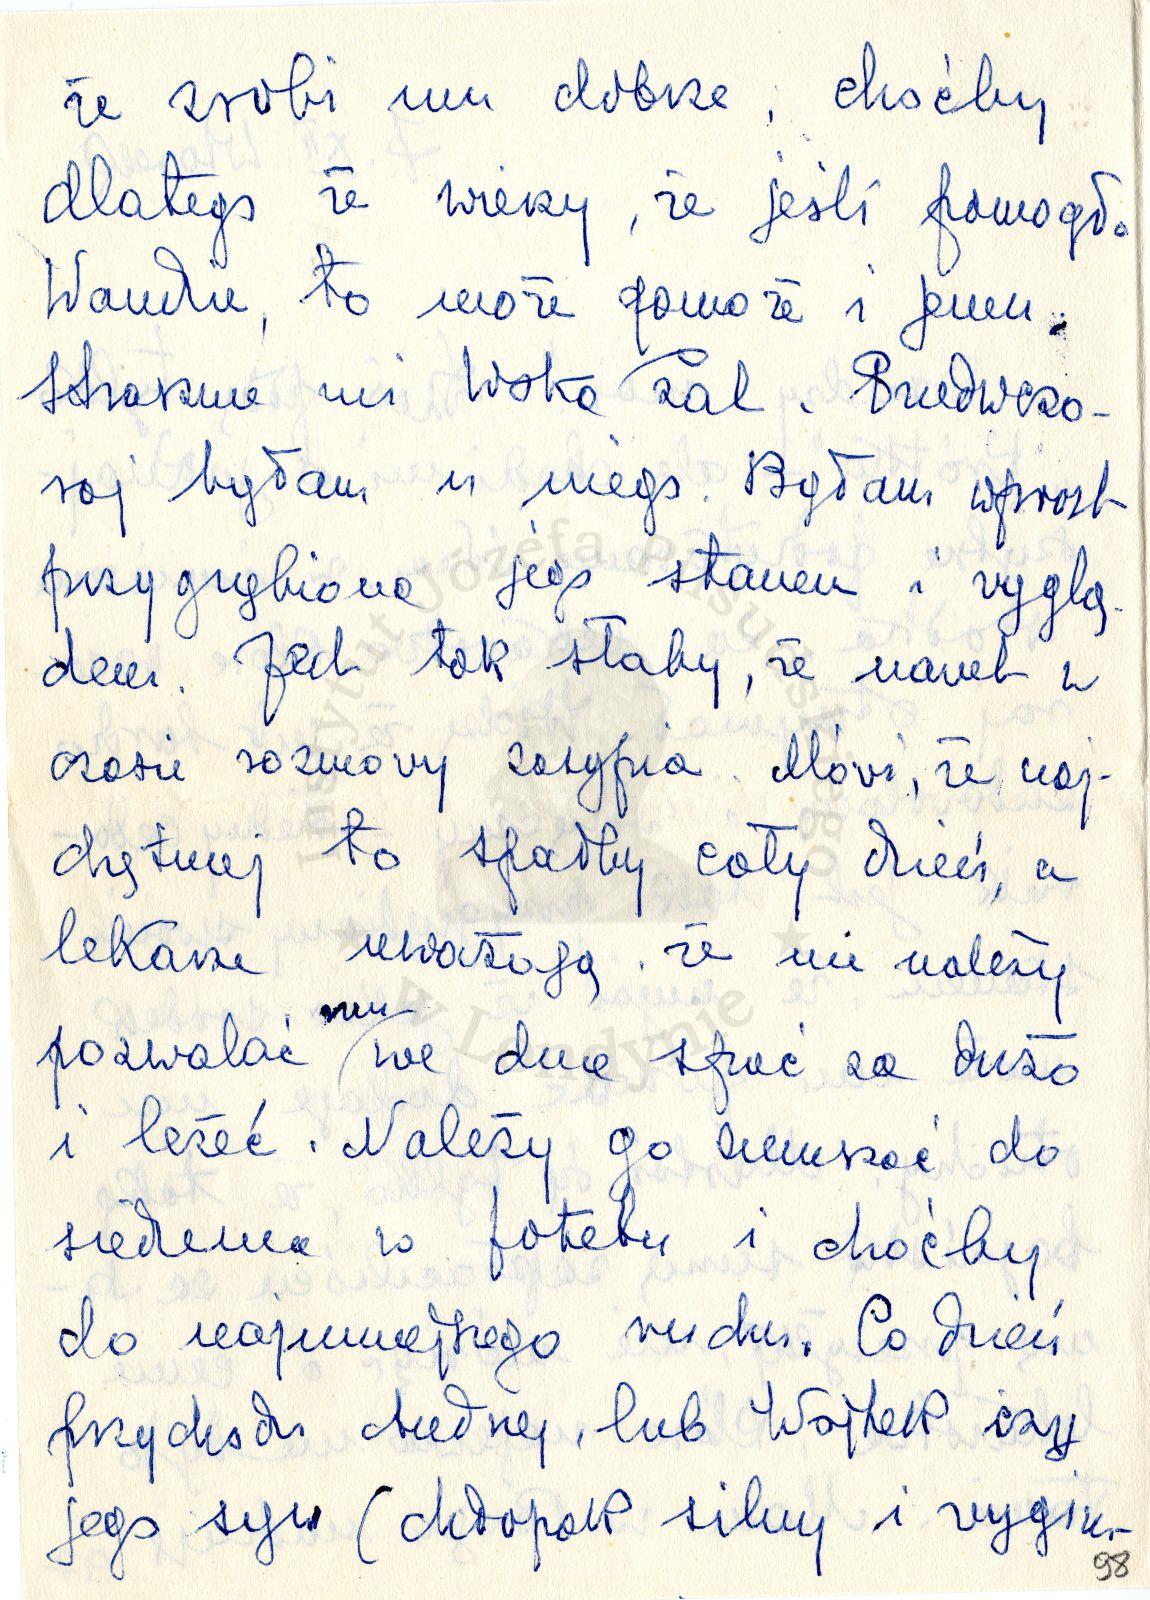 że zrobi mu dobrze, choćby
dlatego że wierzy, że jeśli pomogło
Wandzie, to może pomoże i jemu.
Strasznie mi Witka żal. Przedwczo-
raj byłam u niego. Byłam wprost
przygnębiona jego stanem i wyglą-
dem. Jest tak słaby, że nawet w
czasie rozmowy zasypia. Mówi, że naj-
chętniej to spałby cały dzień, a
lekarze uważają, że nie należy
pozwalać mu we dnie spać za dużo
i leżeć. Należy go zmuszać do
siedzenia w fotelu i choćby
do najmniejszego ruchu. Co dzień
przychodzi Andrzej, lub Wojtek czy
jego syn (chłopak silny i wygim-
98
Instytut Józefa Piłsudskiego
w Londynie